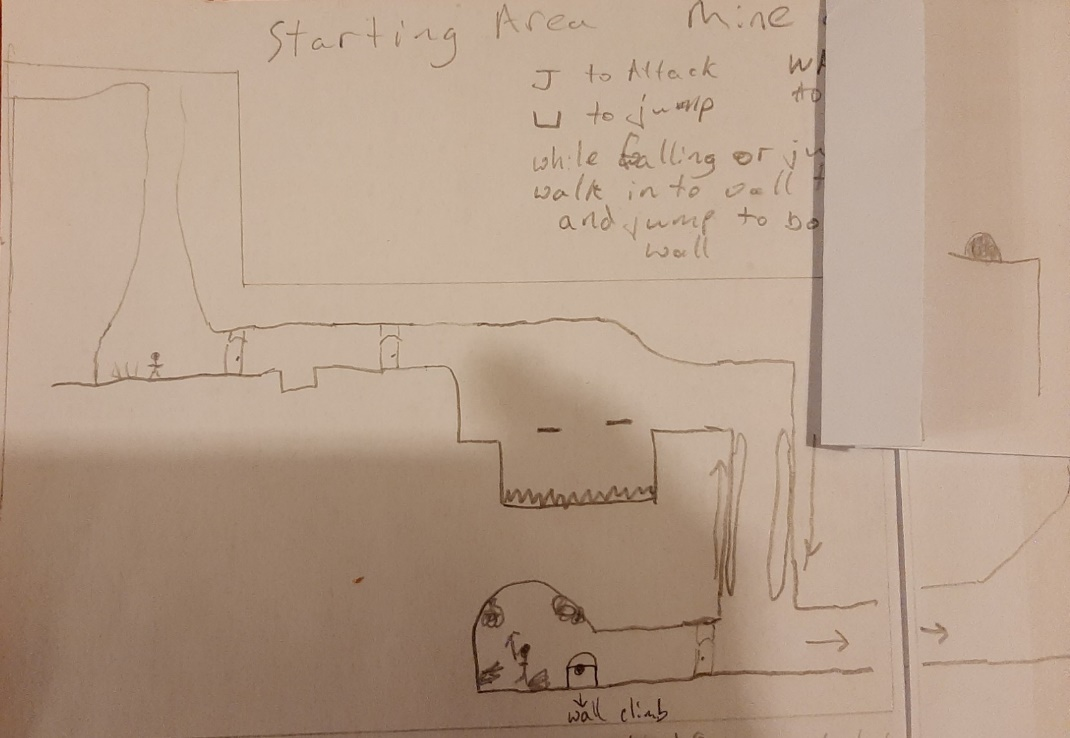 Starting Area Mine
J to Attack
⎵ to jump to
while falling or
walk in to wall
and jump to
wall
wall climb